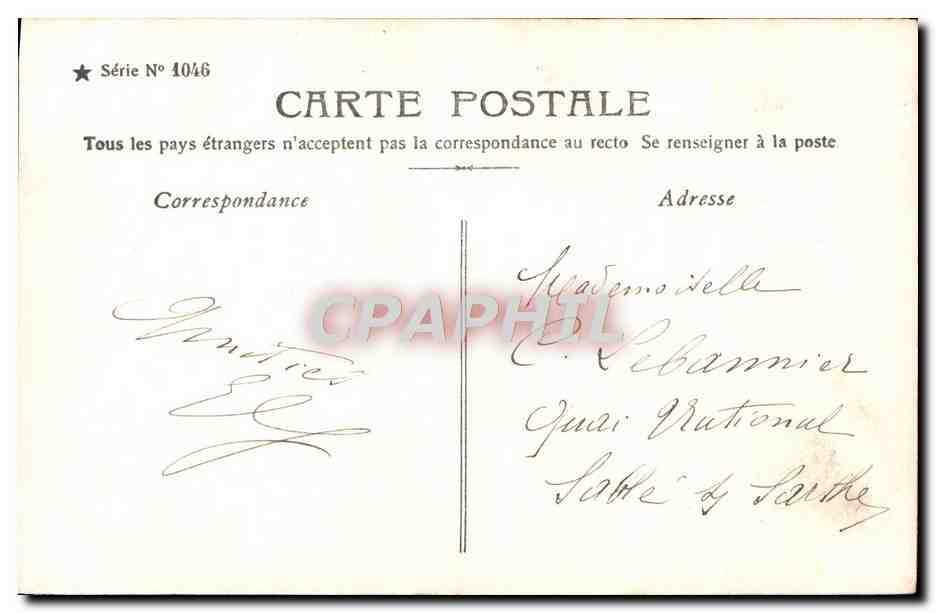 ★ Série Nº 1046
CARTE POSTALE
Tous les pays étrangers n'acceptent pas la correspondance au recto Se renseigner à la poste
Correspondance
Adresse
Amitiés
Mademoiselle
C. Lebannier
Quai National
Sablé s/ Sarthe
CPAPHIL